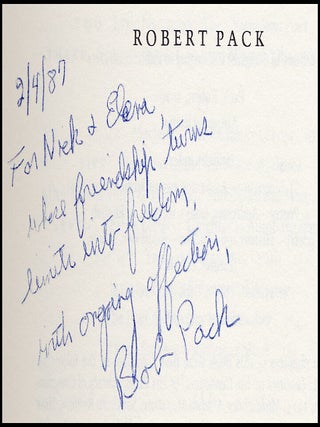 ROBERT PACK
2/4/87
For Nick & Elena,
whose friendship 'turns
limits into freedom,'
with ongoing affection,
Bob Pack